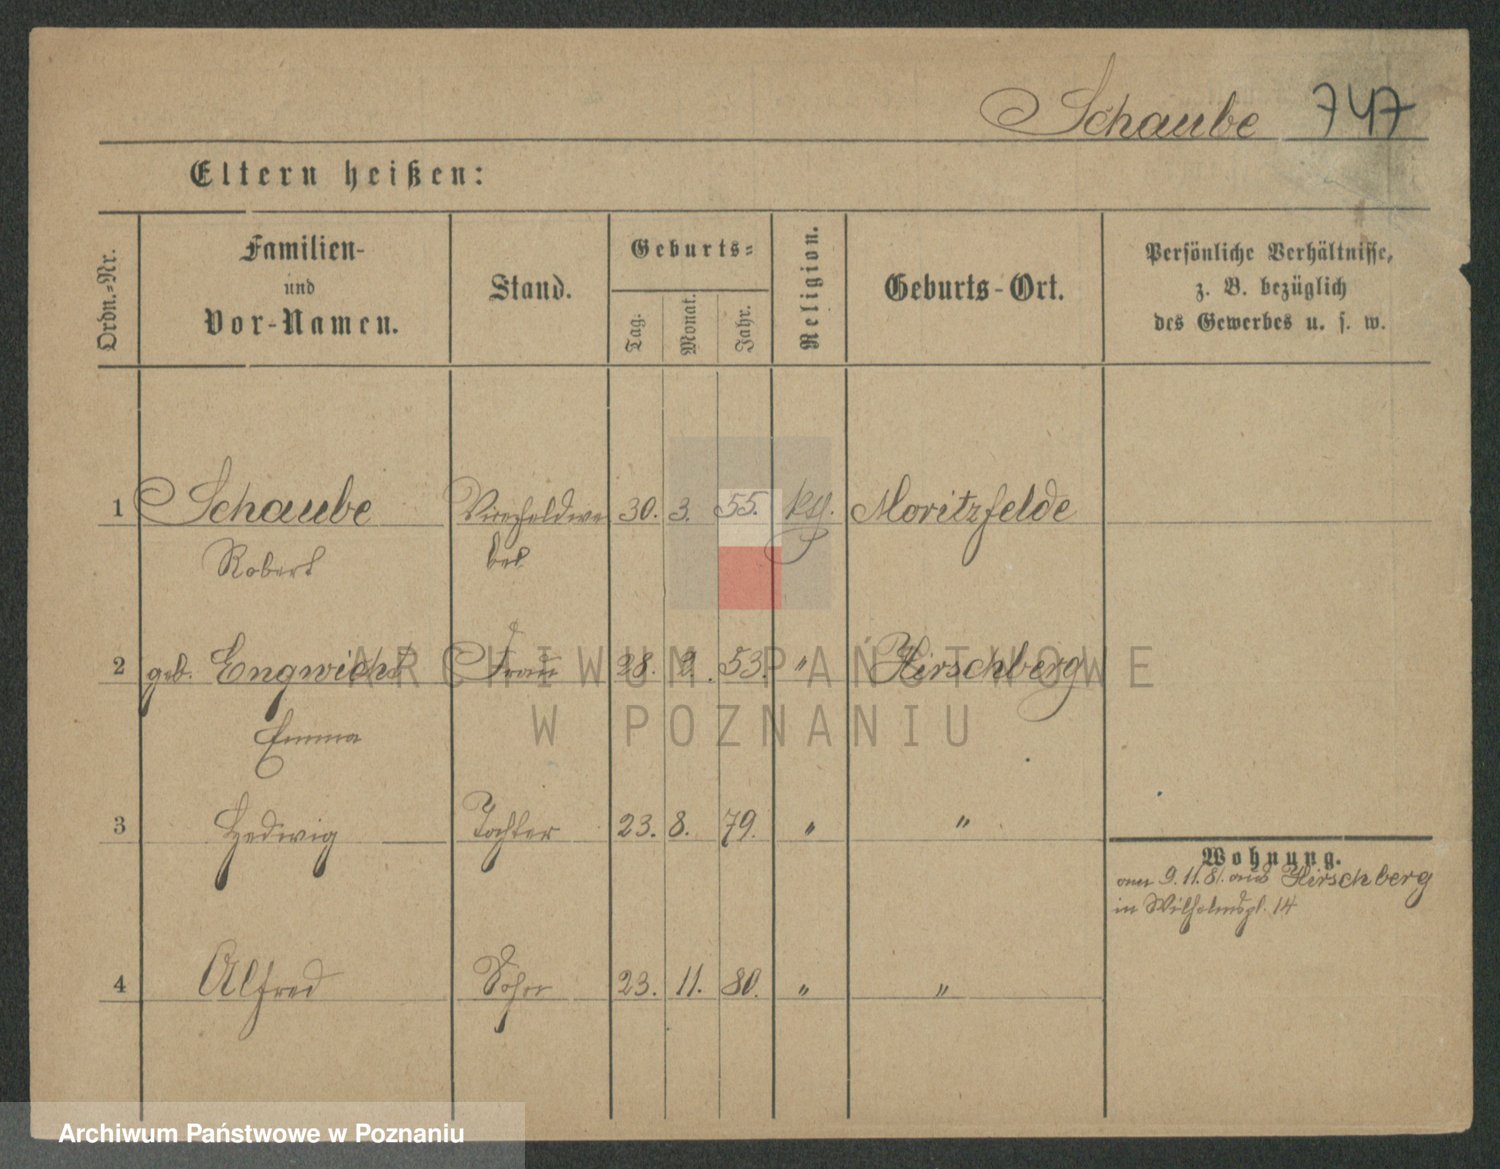 Schaube 747
Eltern heißen:
Ordn.-Nr.
Familien-
und
Vor-Namen.
Stand.
Geburts-
Tag.
Monat.
Jahr.
Religion.
Geburts-Ort.
Persönliche Verhältnisse,
z. B. bezüglich
des Gewerbes u. s. w.
1 Schaube 30. 3. 55. Moritzfelde
Robert
2 geb. Engwicht Frau 28. 2. 53. " Hirschberg
Emma
3 Hedwig Tochter 23. 8. 79. " "
Wohnung.
am 9.11.81. aus Hirschberg
in Wilhelmspl. 14
4 Alfred Sohn 23. 11. 80. " "
ARCHIWUM PAŃSTWOWE
W POZNANIU
Archiwum Państwowe w Poznaniu